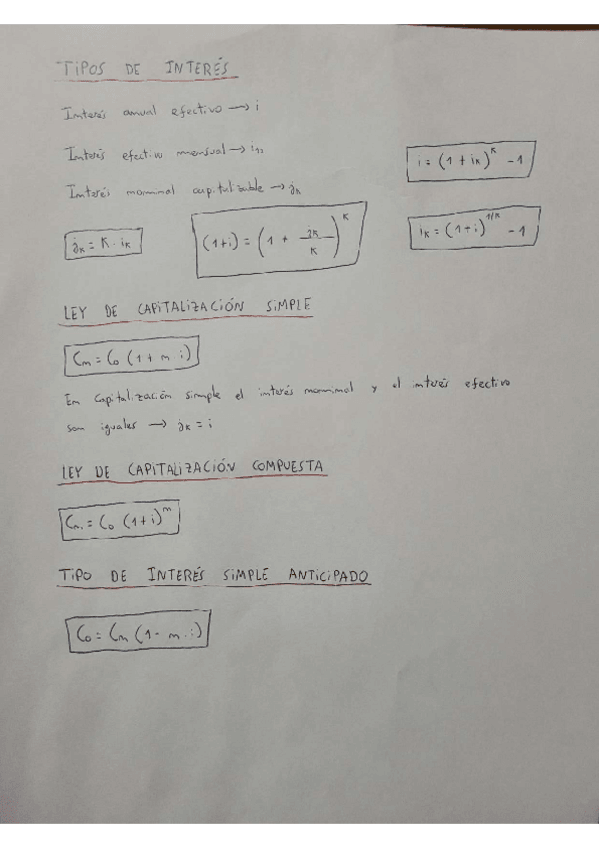 TIPOS DE INTERÉS
Interés anual efectivo → i
Interés efectivo mensual → i12
i = (1 + iK)^K - 1
Interés nominal capitalizable → jK
jK = K · iK
(1+i) = (1 + jK/K)^K
iK = (1+i)^1/K - 1
LEY DE CAPITALIZACIÓN SIMPLE
Cn = C0 (1 + n · i)
En capitalización simple el interés nominal y el interés efectivo
son iguales → jK = i
LEY DE CAPITALIZACIÓN COMPUESTA
Cn = C0 (1+i)^n
TIPO DE INTERÉS SIMPLE ANTICIPADO
C0 = Cn (1 - n · i)